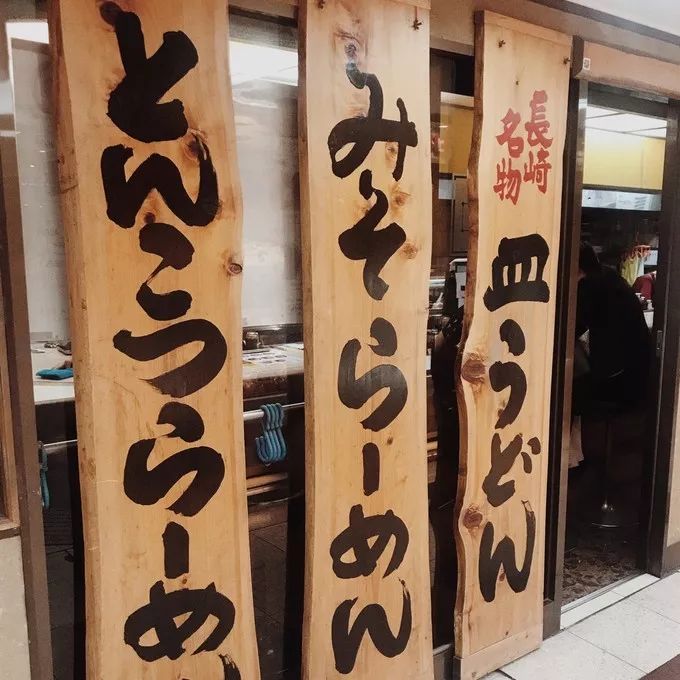 とんこつらーめん
みそらーめん
長崎
名物
皿うどん